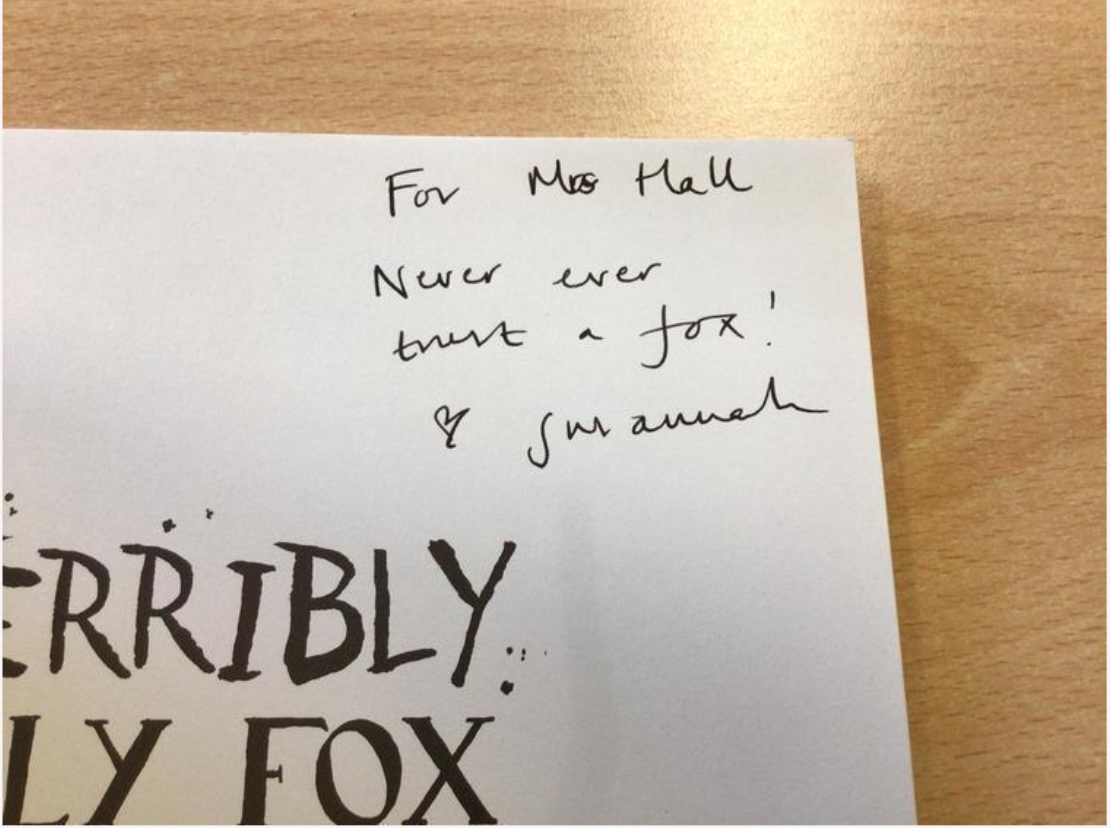 For Mrs Hall
Never ever
trust a fox!
Susannah
ERRIBLY
LY FOX